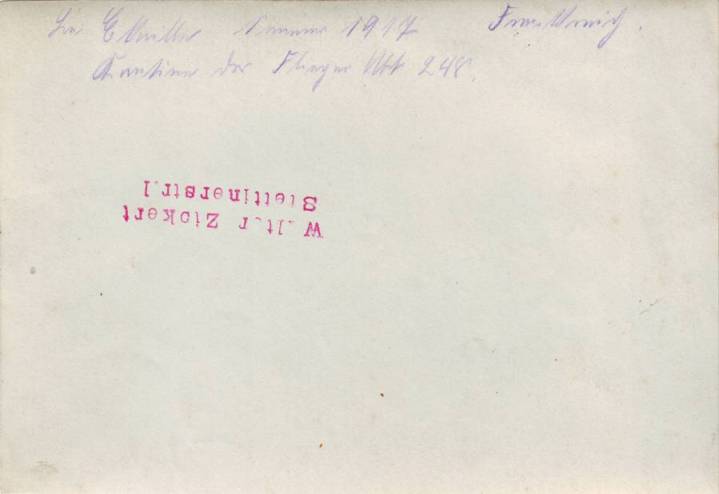 Sommer 1917 Frankreich.
Kantine der Flieger Abt 248.
W lt r Zickert
Stettinerstr.1